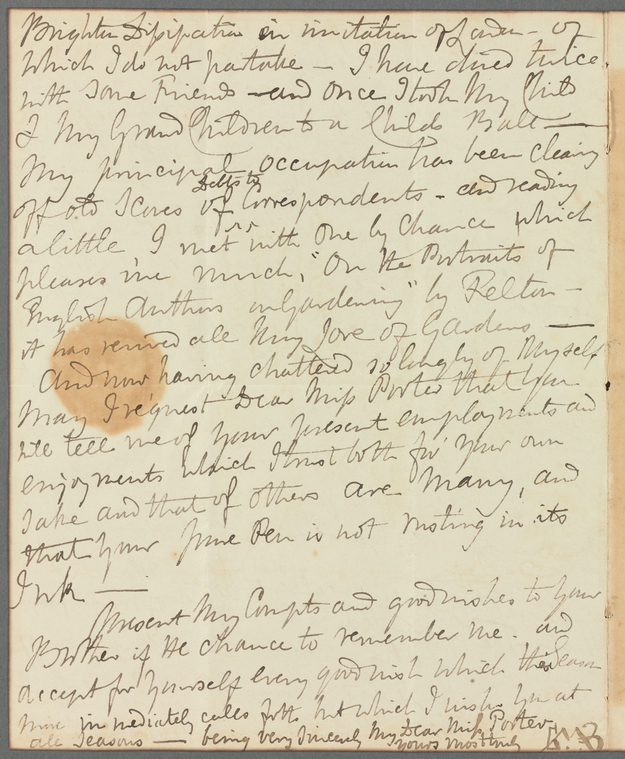 Brighton Dissipation in imitation of London - of
which I do not partake - I have dined twice
with some Friends - and once I took My Child
& My Grand Children to a Childs Ball —
My principal occupation has been clearing
Debts to
off old Scores of Correspondents - and reading
a little I met with one by Chance which
pleases me much, "On the Portraits of
English Authors on Gardening" by Felton -
it has revived all My Love of Gardens —
And now having chattered so long of Myself
May I request Dear Miss Porter that You
will tell me of Your present employments and
enjoyments which I trust both for Your own
Sake and that of others are Many, and
that Your Pen is not rusting in its
Ink —
Present My Compts and good wishes to Your
Brother if He chance to remember me - and
accept for Yourself every good wish which the Season
more immediately calls forth but which I wish You at
all Seasons — being very Sincerely My Dear Miss Porter
Yours most truly